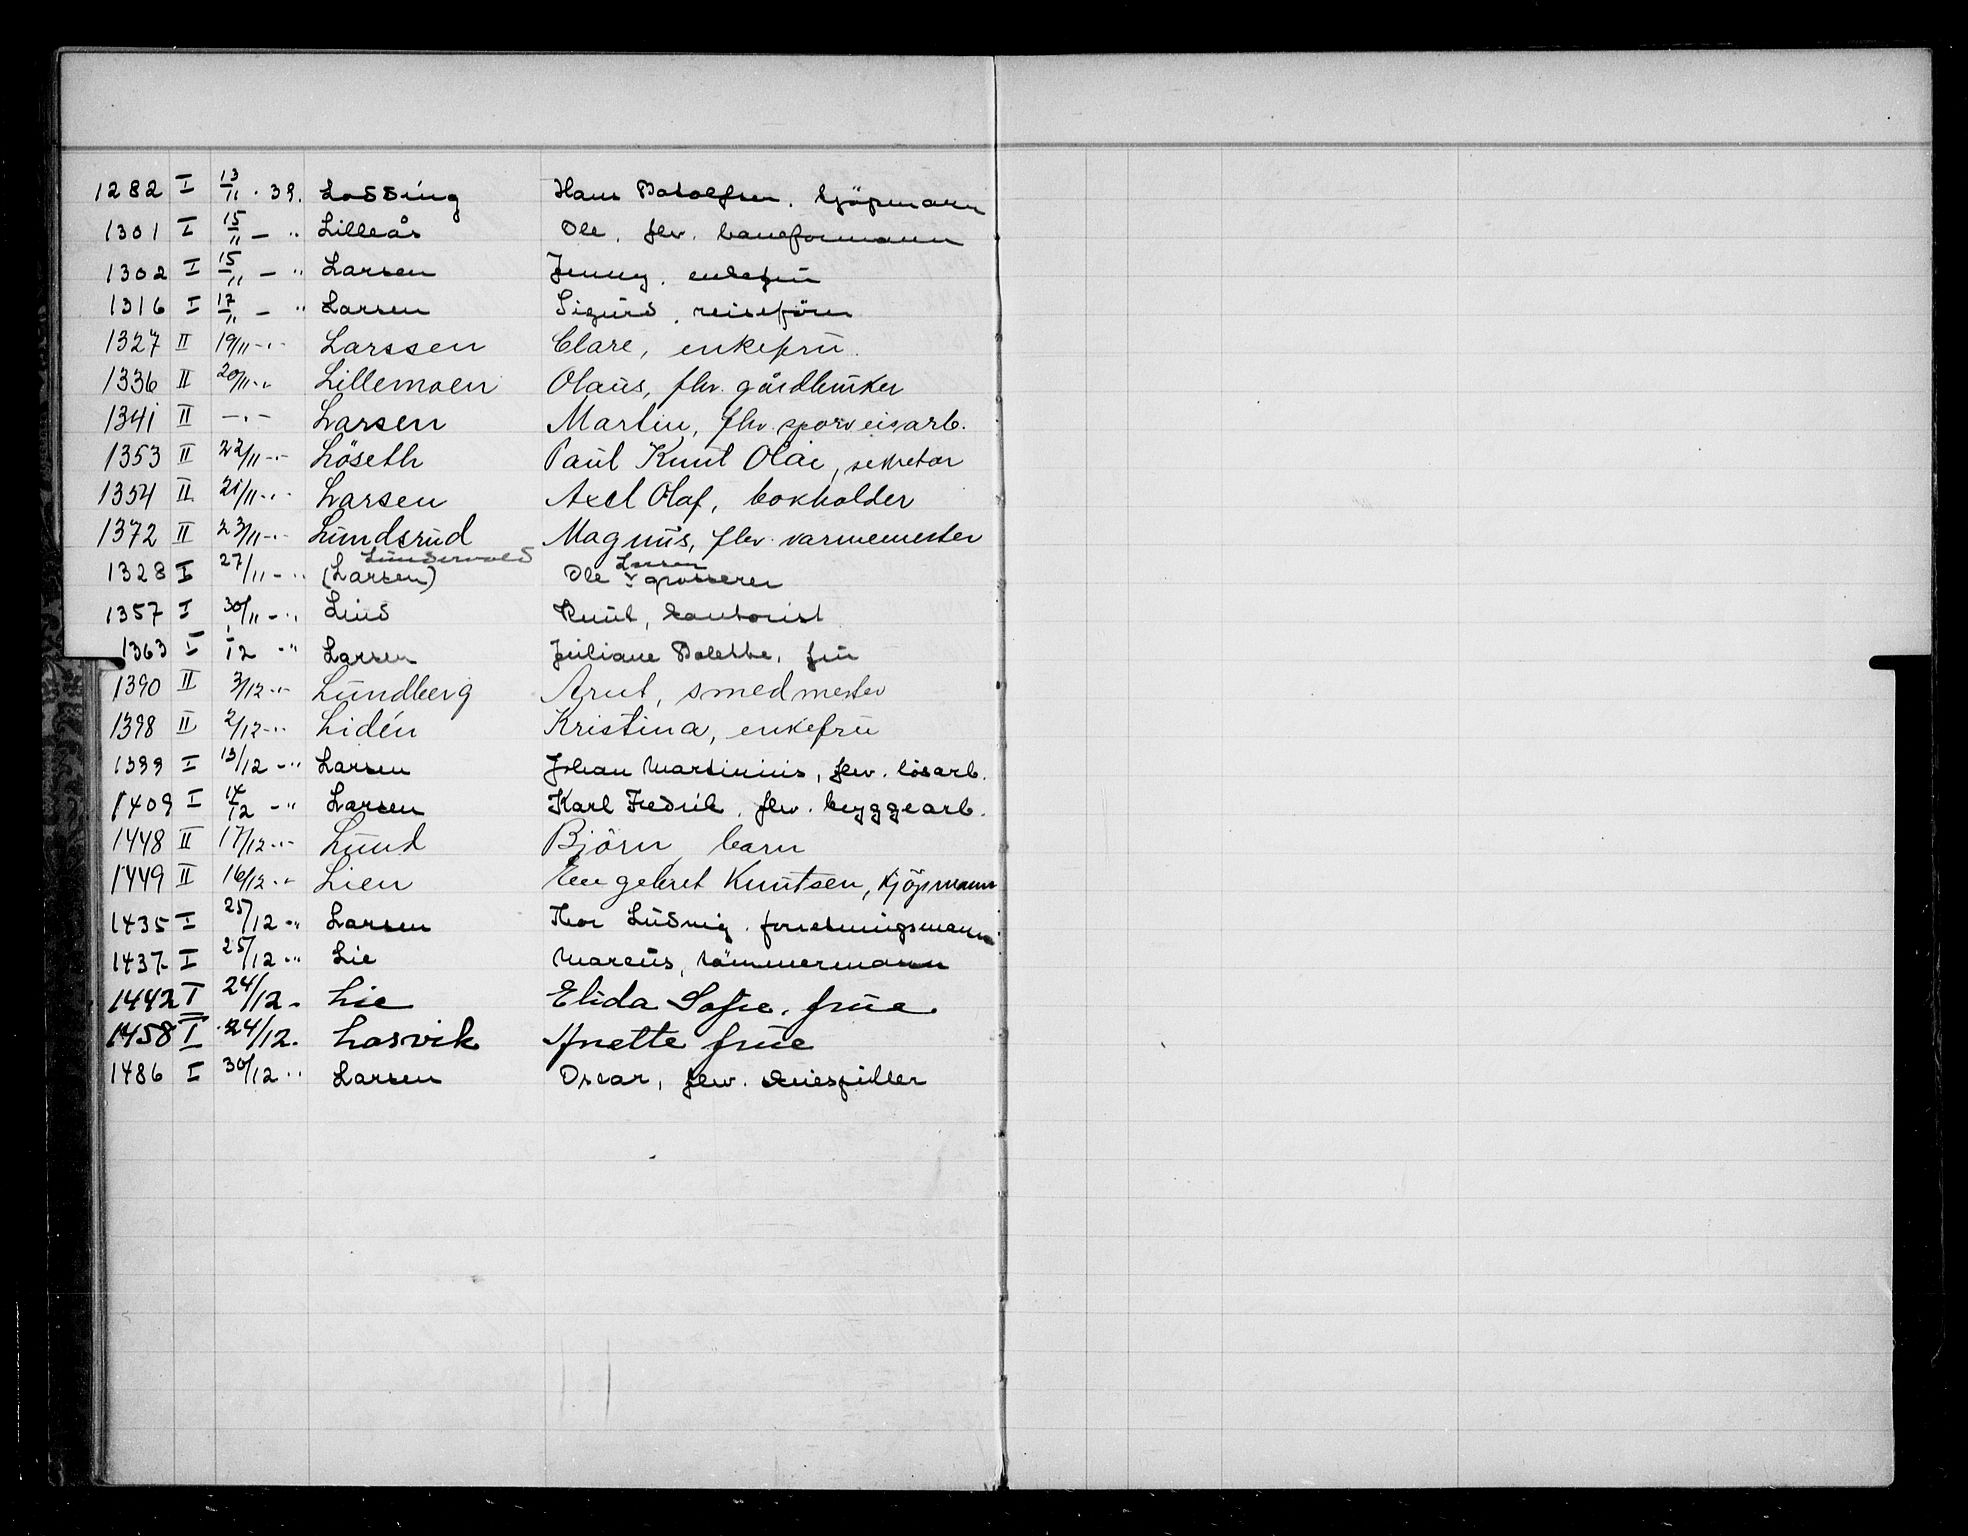 1282 I 13/11 · 39. Lossing Hans Badolfsen. kjöpmann
1301 I 15/11 — " Lilleås Ole, flv. baneformann
1302 I 15/11 — " Larsen Jenny, enkefrü
1316 I 17/11 — " Larsen Sigürd, reiseförer
1327 II 19/11 -"- Larssen Clare, enkefrü.
1336 II 20/11 -" Lillemoen Olaüs, fhv. gårdbrüker
1341 II —"— Larsen Martin, fhv. sporveisarb.
1353 II 22/11 -"- Löseth Paül Knut Olai, sekretær
1354 II 21/11 -"- Larsen Axel Olaf, bokholder
1372 II 23/11 -"- Lündsrüd Magnüs, fhv. varmemester
Lündervold Larsen
1328 I 27/11 -" (Larsen) Ole v grosserer
1357 I 30/11 -" Lind Knüt, kontorist
1363 I 1/12 -" Larsen Jüliane Bolette, frü
1390 II 3/12 -"- Lündberg Arnt, smedmester
1398 II 2/12 -"- Lidén Kristina, enkefrü
1399 I 13/12 -" Larsen Johan Martiniüs, flv. lösarb.
1409 I 14/12 -" Larsen Karl Fredrik, flv. bryggearb.
1448 II 17/12 -"- Lünd Björn, barn
1449 II 16/12 -"- Lien Engebret Knütsen, kjöpmann
1435 I 25/12 -" Larsen Thor Lüdvig. forretningsmann
1437 I 25/12 -" Lie Marcüs, tömmermann
1442 I 24/12 - Lie Elida Sofie. früe
1458 I 24/12. Losvik Anette früe
1486 I 30/12 " Larsen Oscar, flv. sküespiller